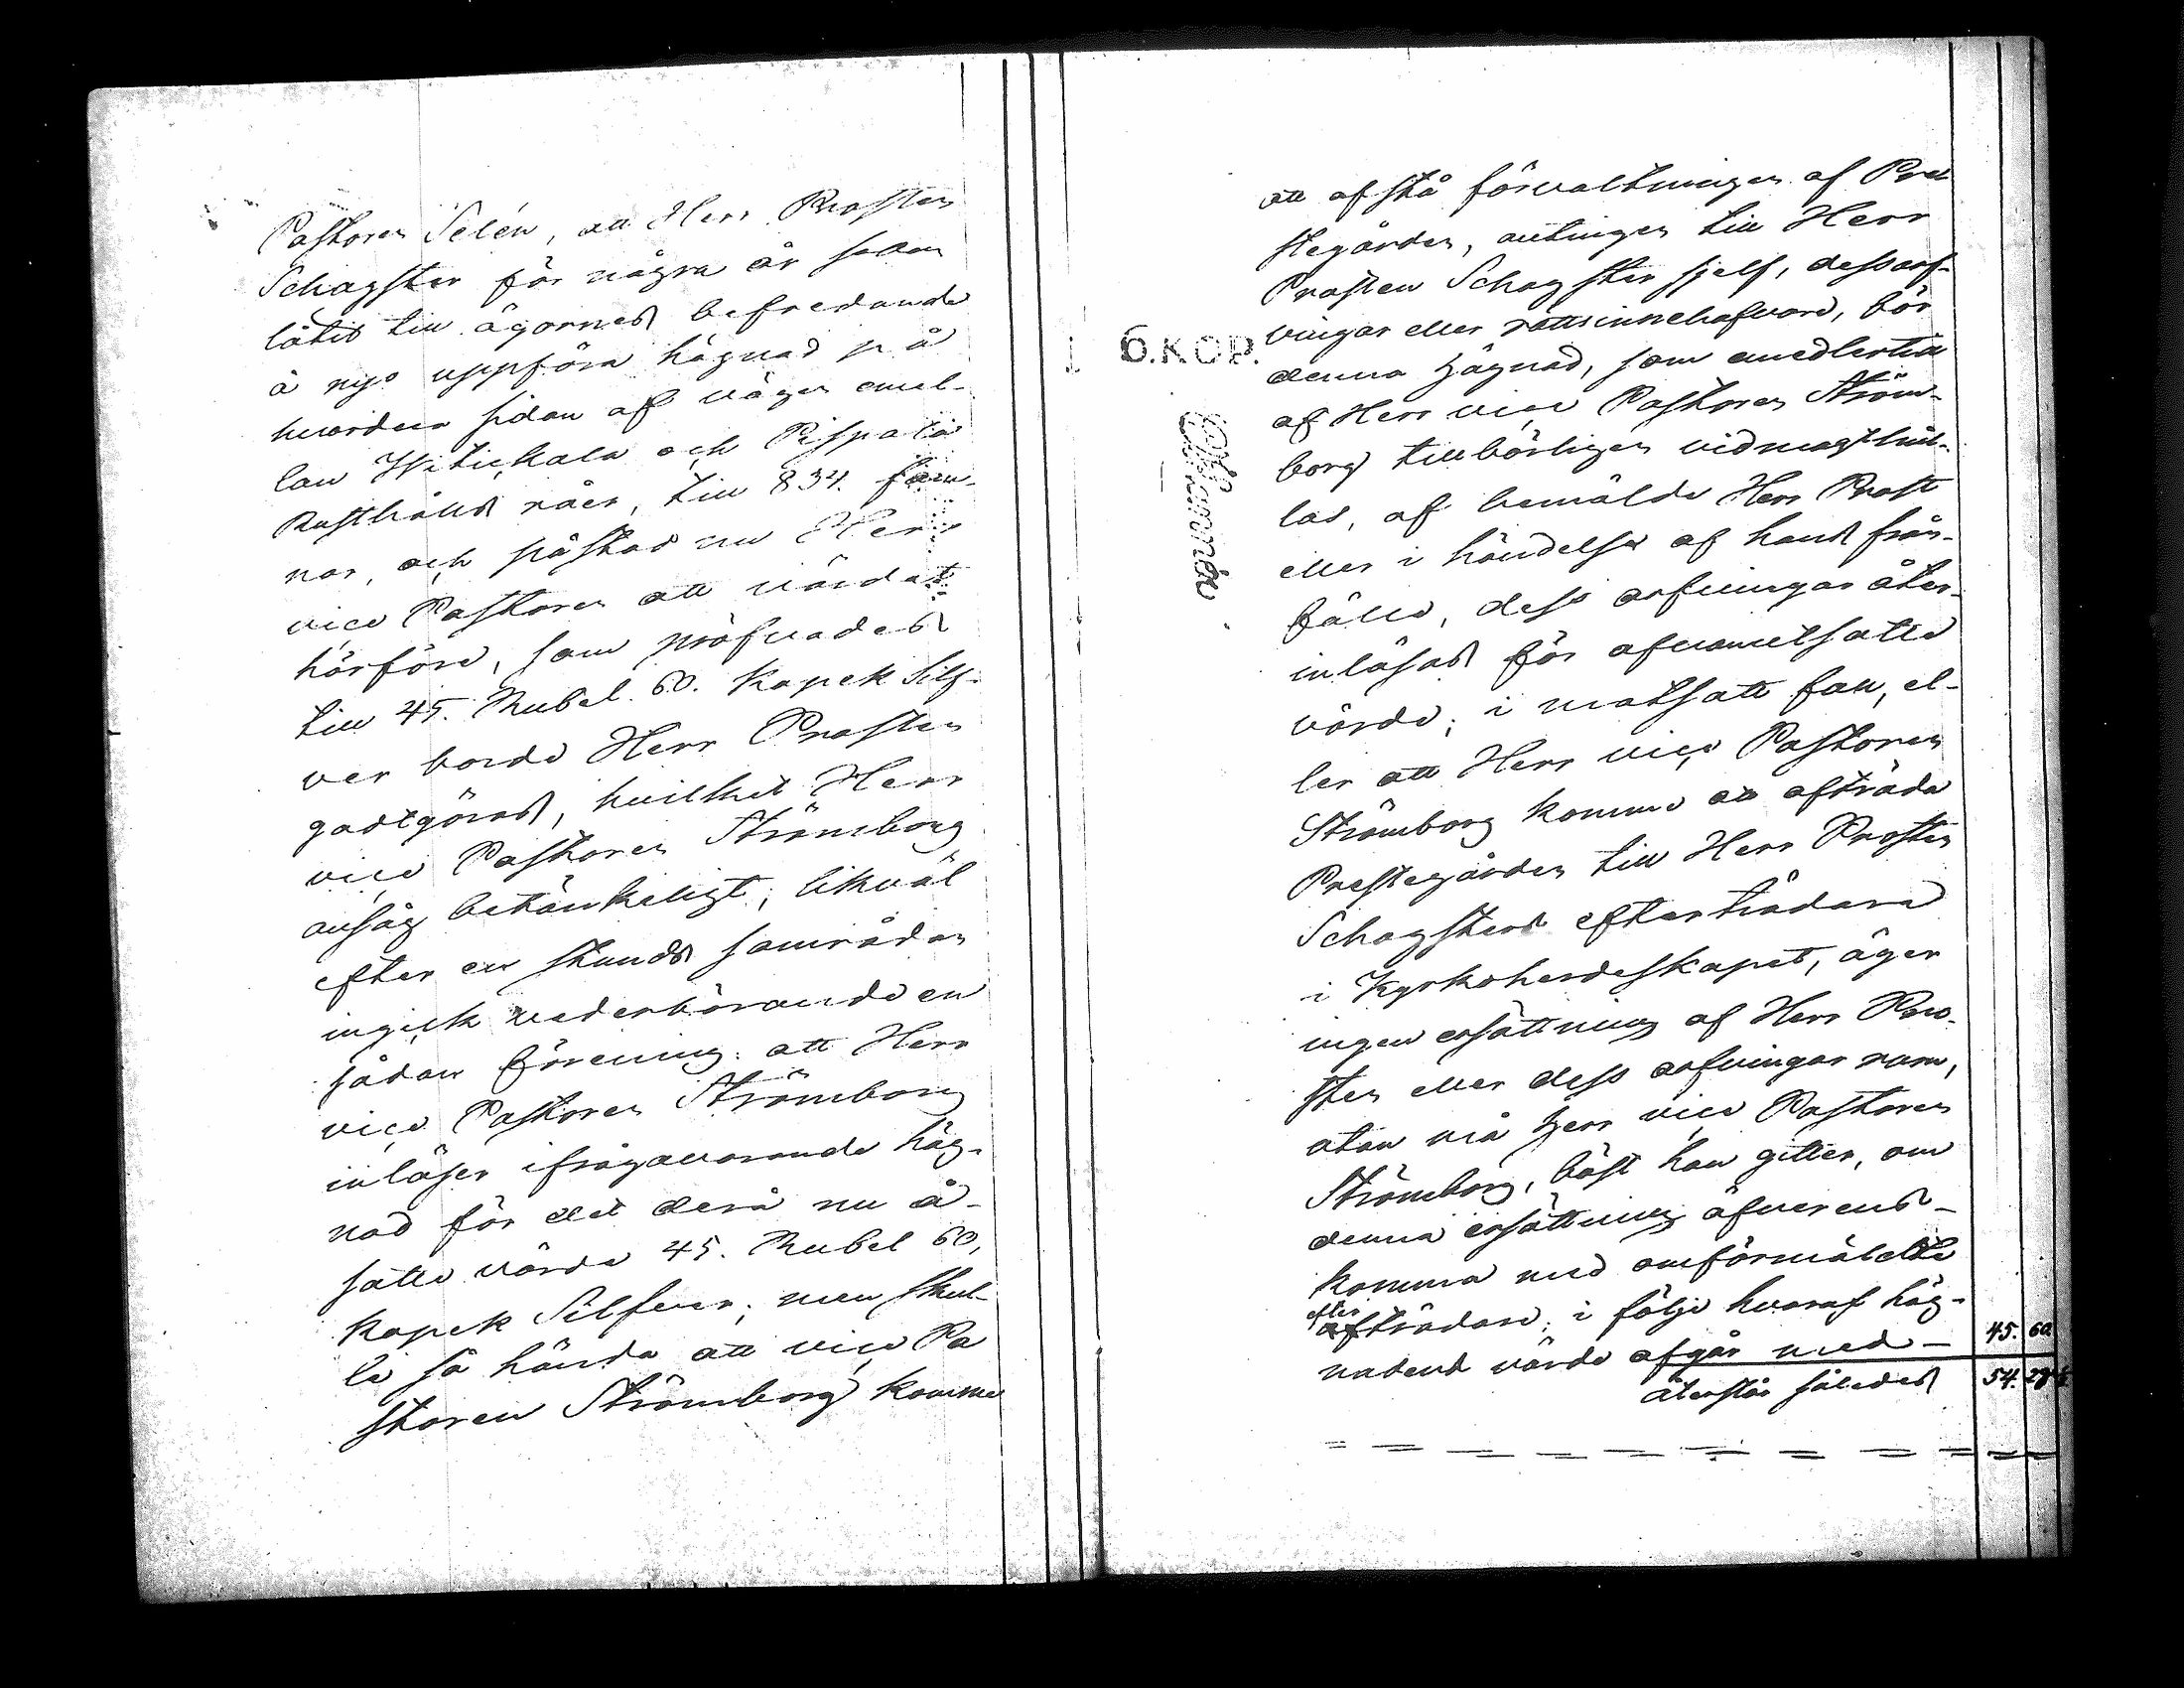 Pastoren Selén, att Herr Prosten
Schagster för några år sedan
låtit till ägornes befredande
å nyo uppföra hägnad på
hvardera sidan af vägen emel-
lan Wiikkala och Pispala
Rusthålls råer, till 834. fam-
nar, och påstod nu Herr
vice Pastoren att värdet
härföre, som pröfvades
till 45. Rubel 60. Kopek Silf-
ver borde Herr Prosten
godtgöras, hvilket Herr
vice Pastoren Strömborg
ansåg betänkeligt; likväl
efter en stunds samråda
ingick vederbörande en
sådan förening: att Herr
vice Pastoren Strömborg
inlöser ifrågavarande häg-
nad för det derå nu å-
satte värde 45. Rubel 60,
Kopek Silfver; men skul-
le så hända att vice Pa
storen Strömborg komme
att afstå förvaltningen af Pre
stegården, antingen till Herr
Prosten Schagster sjelf, dess arf-
vingar eller rättsinnehafvare, bör
6.KOP.
denna hägnad, som emedlertid
af Herr vice Pastoren Ström-
borg tillbörligen vidmagthål-
las, af bemälde Herr Prost
eller i händelse af hans från-
fälle, dess arfvingar åter-
inlösas för ofvanutsatte
värde; i motsatt fall, el-
ler att Herr vice Pastoren
Strömborg komme att afträda
Prestegården till Herr Prosten
Schagsters efterträdare
i Kyrkoherdeskapet, äger
ingen ersättning af Herr Pro-
sten eller dess arfvingar rum,
utan må Herr vice Pastoren
Strömborg, bäst han gitter, om
denna ersättning öfverens-
komma med omförmälde
efter
trädare; i följe hvaraf häg-
nadens värde afgår med — 45. 60
återstår således 54. 28